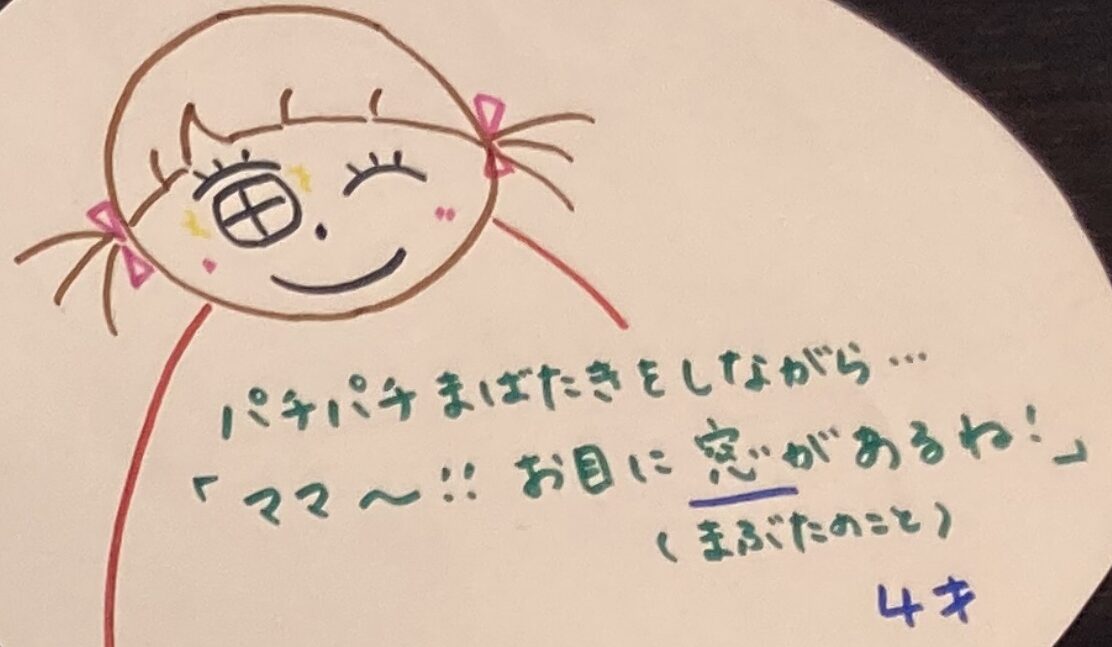 パチパチまばたきをしながら…
「ママ～!! お目に窓があるね!」
(まぶたのこと)
4才